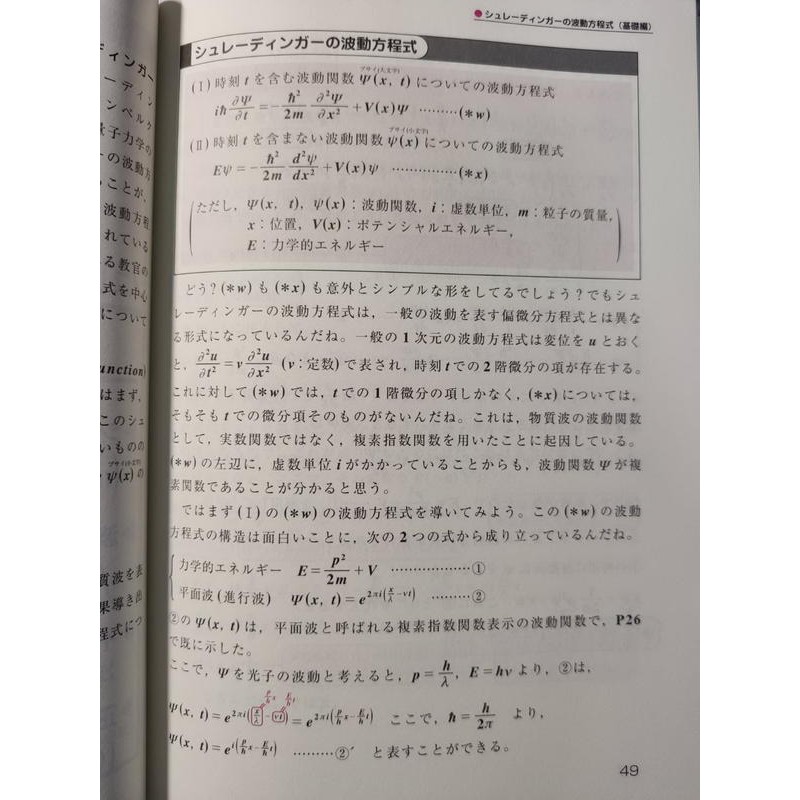 ●シュレーディンガーの波動方程式(基礎編)
シュレーディンガーの波動方程式
プサイ(大文字)
(Ⅰ)時刻 t を含む波動関数 Ψ(x, t) についての波動方程式
iħ ∂Ψ/∂t = −ħ²/2m ∂²Ψ/∂x² + V(x)Ψ ………(*w)
プサイ(小文字)
(Ⅱ)時刻 t を含まない波動関数 ψ(x) についての波動方程式
Eψ = −ħ²/2m d²ψ/dx² + V(x)ψ ……………(*x)
(ただし, Ψ(x, t), ψ(x):波動関数, i:虚数単位, m:粒子の質量,
x:位置, V(x):ポテンシャルエネルギー,
E:力学的エネルギー)
どう?(*w)も(*x)も意外とシンプルな形をしてるでしょう?でもシュ
レーディンガーの波動方程式は, 一般の波動を表す偏微分方程式とは異な
る形式になっているんだね。一般の1次元の波動方程式は変位を u とおく
と, ∂²u/∂t² = v ∂²u/∂x² (v:定数)で表され, 時刻 t での2階微分の項が存在する。
これに対して(*w)では, t での1階微分の項しかなく, (*x)については,
そもそも t での微分項そのものがないんだね。これは, 物質波の波動関数
として, 実数関数ではなく, 複素指数関数を用いたことに起因している。
(*w)の左辺に, 虚数単位 i がかかっていることからも, 波動関数 Ψ が複
素関数であることが分かると思う。
ではまず(Ⅰ)の(*w)の波動方程式を導いてみよう。この(*w)の波動
方程式の構造は面白いことに, 次の2つの式から成り立っているんだね。
力学的エネルギー E = p²/2m + V ………………①
平面波(進行波) Ψ(x, t) = e^{2πi(x/λ − νt)} ………②
②の Ψ(x, t) は, 平面波と呼ばれる複素指数関数表示の波動関数で, P26
で既に示した。
ここで, Ψ を光子の波動と考えると, p = h/λ, E = hν より, ②は,
p/h x E/h t
Ψ(x, t) = e^{2πi(x/λ − νt)} = e^{2πi(p/h x − E/h t)} ここで, ħ = h/2π より,
Ψ(x, t) = e^{i(p/ħ x − E/ħ t)} ………②′ と表すことができる。
49
ディンガー
ーディン
ンベルク
量子力学の
の波動方
ことが,
波動方程
れている
る教官の
式を中心
について
unction)
はまず,
このシュ
いものの
プサイ(小文字)
ψ(x)の
質波を表
果導き出
程式につ